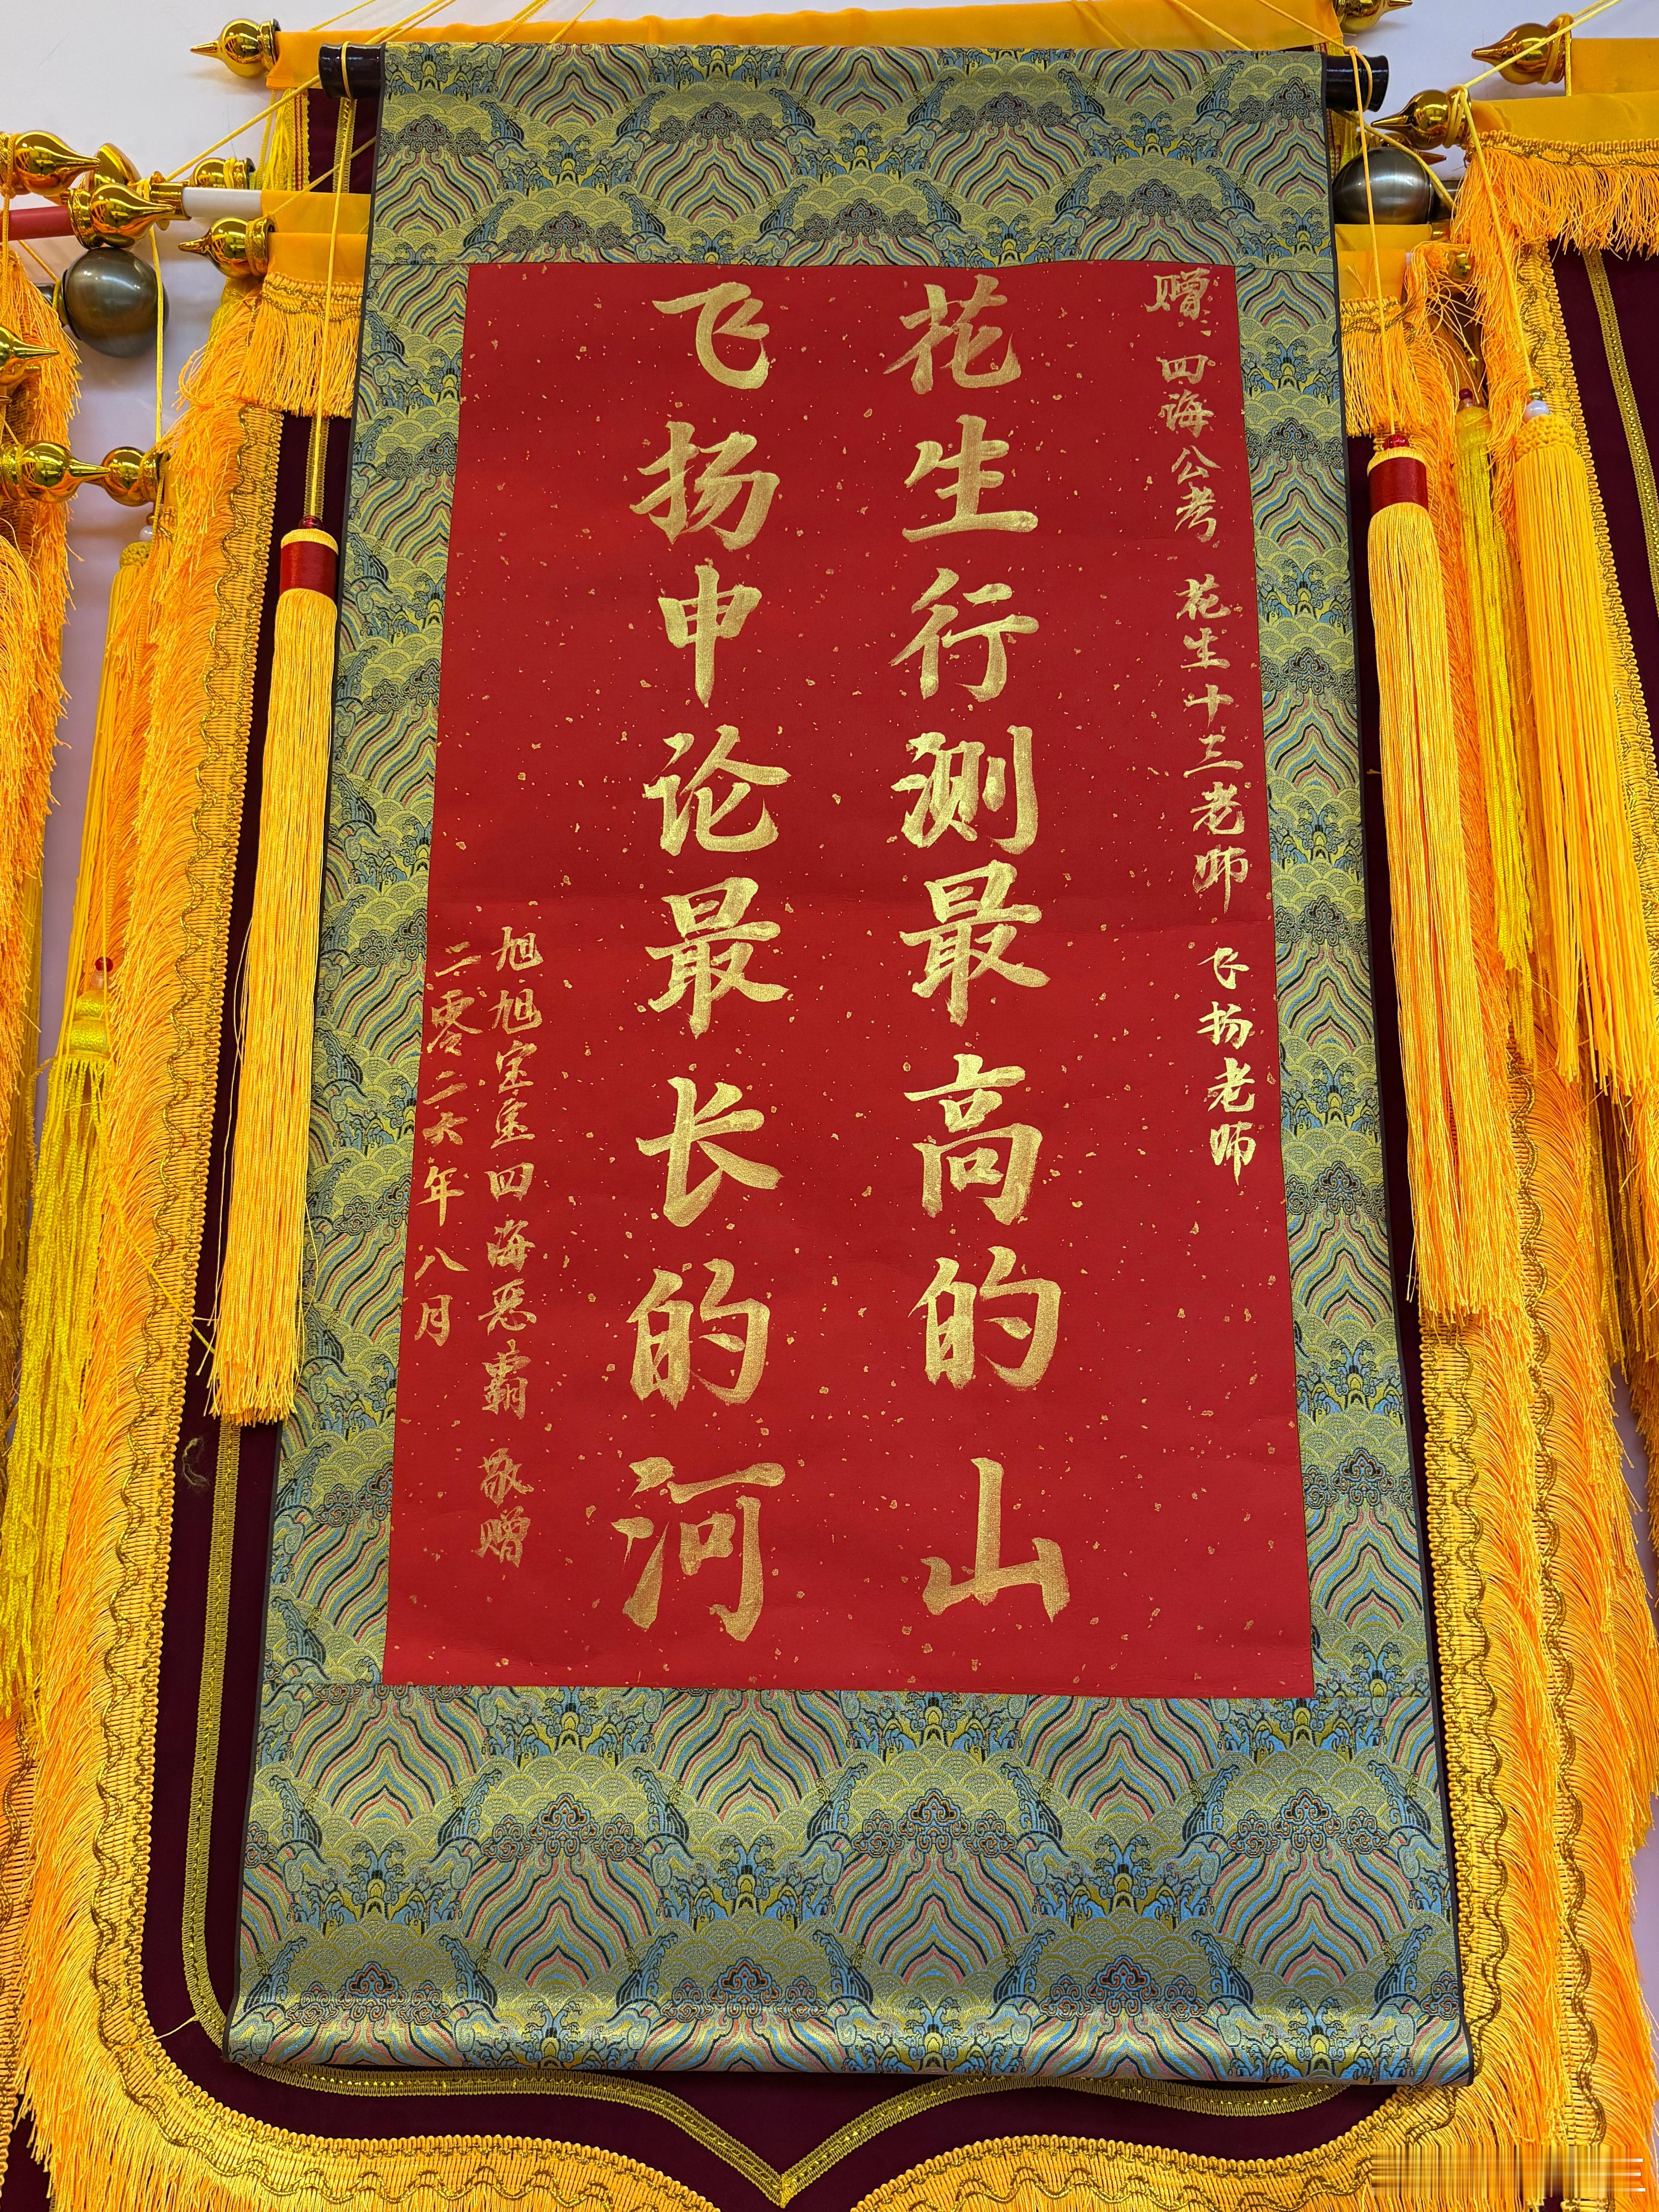 赠: 四海公考 花生十三老师 飞扬老师
花生行测最高的山
飞扬申论最长的河
旭旭宝宝四海恶霸 敬赠
二零二六年八月